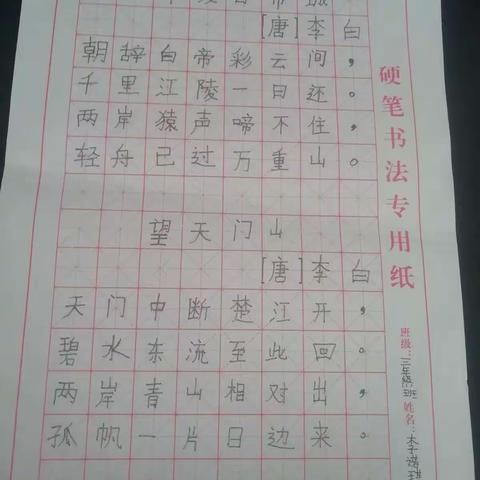 [唐]李白
朝辞白帝彩云间，
千里江陵一日还。
两岸猿声啼不住，
轻舟已过万重山。
望天门山
[唐]李白
天门中断楚江开，
碧水东流至此回。
两岸青山相对出，
孤帆一片日边来。
硬笔书法专用纸
班级：三年 班 姓名：李诺